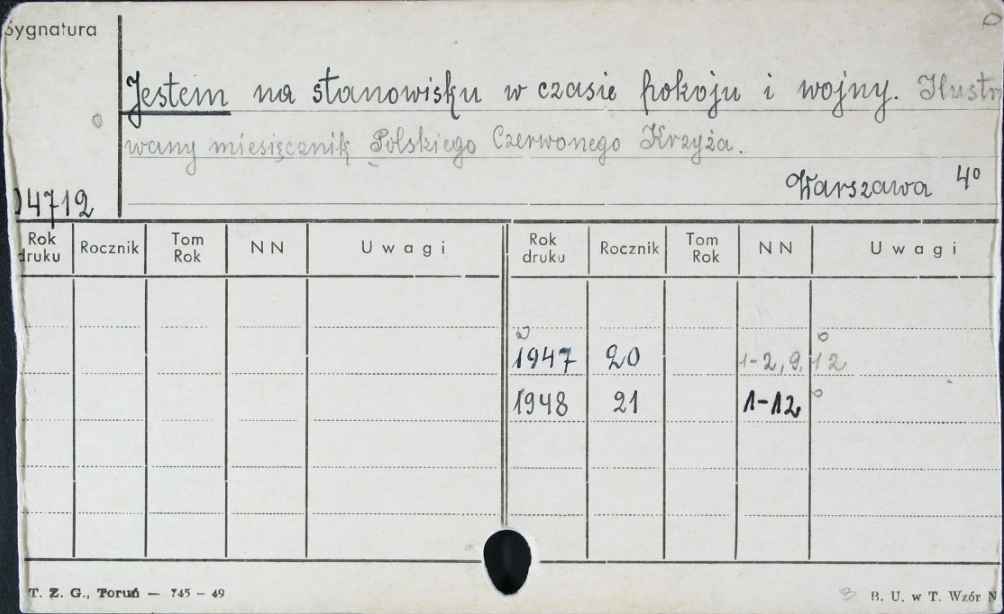 Sygnatura
Jestem na stanowisku w czasie pokoju i wojny. Ilustr
wany miesięcznik Polskiego Czerwonego Krzyża.
Warszawa 4º
04712
Rok druku Rocznik Tom Rok NN Uwagi Rok druku Rocznik Tom Rok NN Uwagi
1947 20 1-2, 9, 12
1948 21 1-12
T. Z. G., Toruń — 745 - 49
B. U. w T. Wzór N